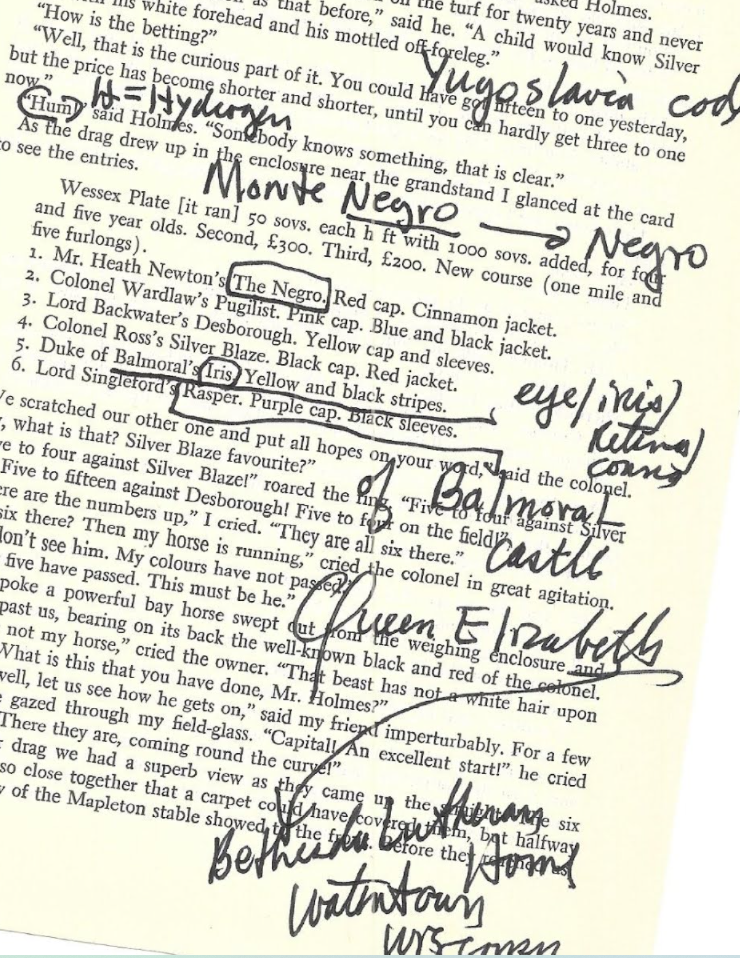 the turf for twenty years and never
asked Holmes.
his white forehead and his mottled off-foreleg."
as that before," said he. "A child would know Silver
"How is the betting?"
"Well, that is the curious part of it. You could have got fifteen to one yesterday,
but the price has become shorter and shorter, until you can hardly get three to one
now."
Yugoslavia
"Hum!" said Holmes. "Somebody knows something, that is clear."
H = Hydrogen
As the drag drew up in the enclosure near the grandstand I glanced at the card
to see the entries.
Monte Negro → Negro
Wessex Plate [it ran] 50 sovs. each h ft with 1000 sovs. added, for four
and five year olds. Second, £300. Third, £200. New course (one mile and
five furlongs).
1. Mr. Heath Newton's The Negro. Red cap. Cinnamon jacket.
2. Colonel Wardlaw's Pugilist. Pink cap. Blue and black jacket.
3. Lord Backwater's Desborough. Yellow cap and sleeves.
4. Colonel Ross's Silver Blaze. Black cap. Red jacket.
5. Duke of Balmoral's Iris. Yellow and black stripes.
6. Lord Singleford's Rasper. Purple cap. Black sleeves.
eye/iris/
Retina/
of Balmoral
Castle
We scratched our other one and put all hopes on your word," said the colonel.
, what is that? Silver Blaze favourite?"
to four against Silver Blaze!" roared the ring. "Five to four against Silver
Five to fifteen against Desborough! Five to four on the field!"
are the numbers up," I cried. "They are all six there."
six there? Then my horse is running," cried the colonel in great agitation.
don't see him. My colours have not passed."
five have passed. This must be he."
Queen Elizabeth
spoke a powerful bay horse swept out from the weighing enclosure and
past us, bearing on its back the well-known black and red of the colonel.
not my horse," cried the owner. "That beast has not a white hair upon
What is this that you have done, Mr. Holmes?"
well, let us see how he gets on," said my friend imperturbably. For a few
gazed through my field-glass. "Capital! An excellent start!" he cried
There they are, coming round the curve!"
drag we had a superb view as they came up the six
so close together that a carpet could have covered them, but halfway
of the Mapleton stable showed to the front. Before they
Bethesda Lutheran
Home
Watertown
Wisconsin